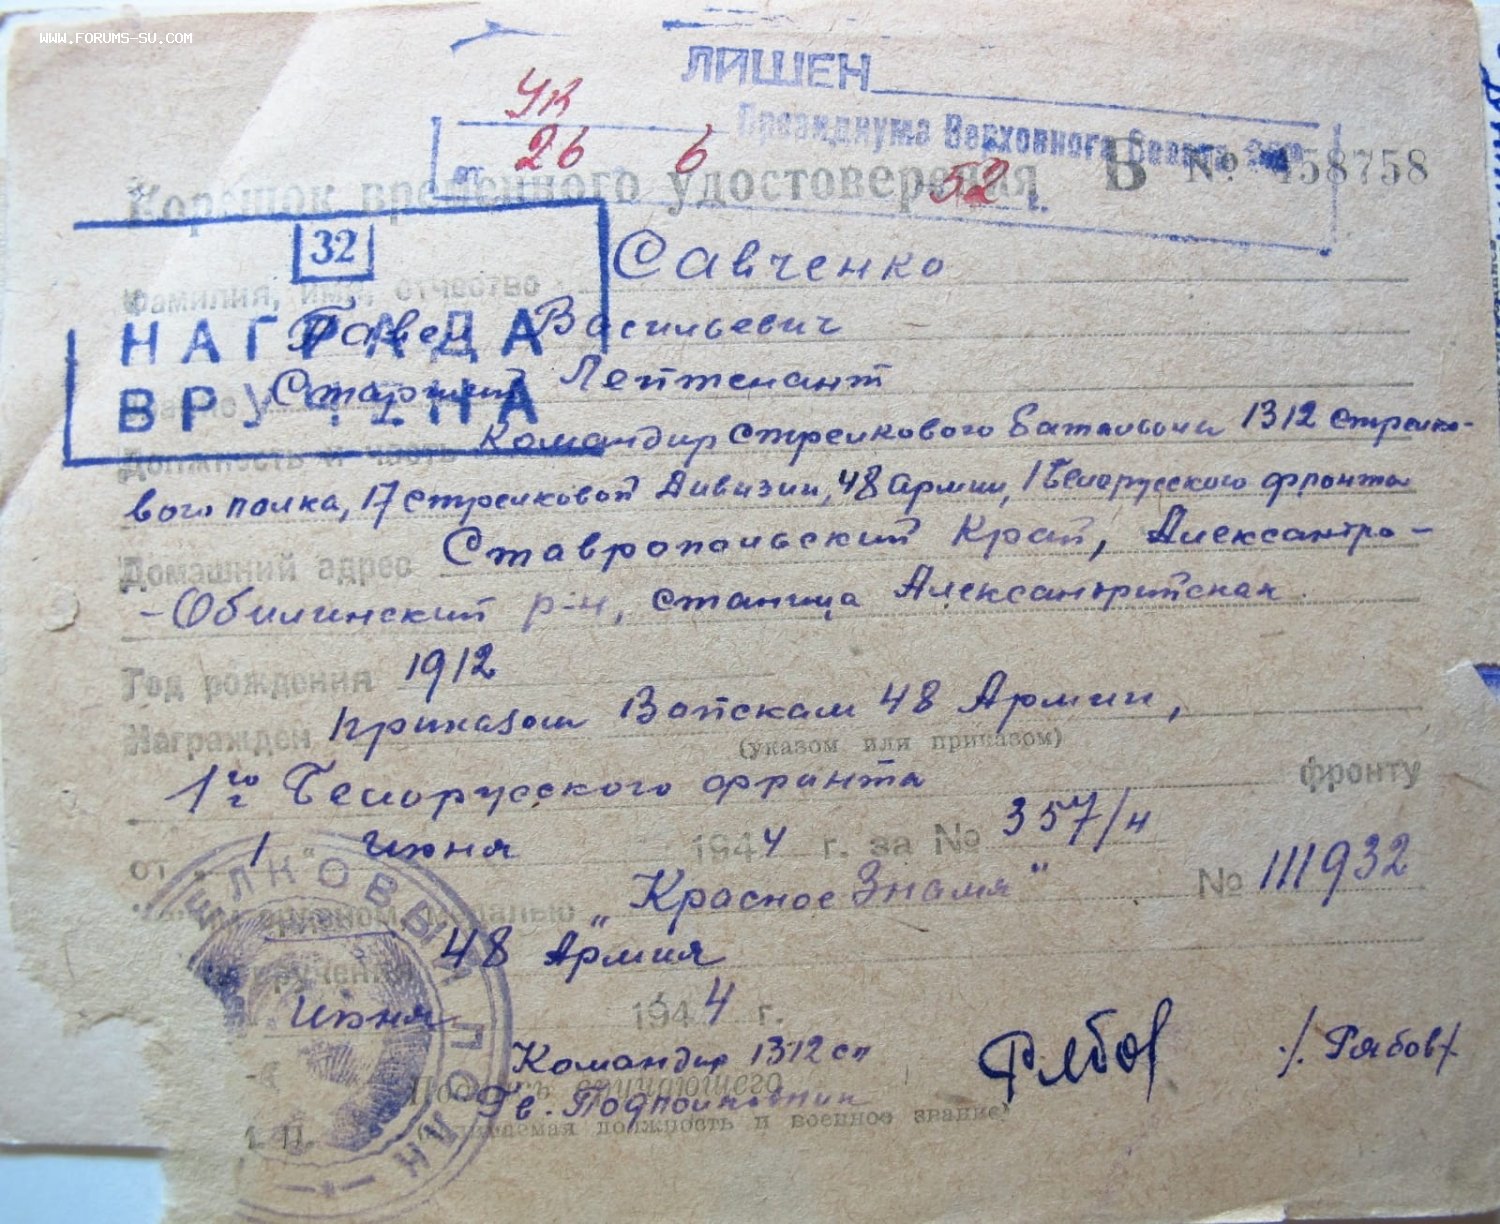 WWW.FORUMS-SU.COM
ЛИШЕН
Ук
Президиума Верховного Совета
от 26 6 52 г.
Корешок временного удостоверения В № 458758
32
Фамилия, имя, отчество Савченко
Павел Васильевич
НАГРАДА
Звание Старший Лейтенант
ВРУЧЕНА
Должность и часть Командир стрелкового батальона 1312 стрелко-
вого полка, 17 стрелковой дивизии, 48 армии, 1 Белорусского фронта
Домашний адрес Ставропольский Край, Александро-
-Обилинский р-н, станица Александрийская.
Год рождения 1912
Награжден приказом Войскам 48 Армии,
(указом или приказом)
1го Белорусского фронта фронту
от „ 1 “ Июня 1944 г. за № 357/н
орденом, медалью „Красное Знамя“ № 111932
вручения 48 Армия
Июня 1944 г.
Командир 1312 сп
Рябов /Рябов/
Подпись вручающего
Гв. Подполковник
должность и военное звание)
ЕЛКОВЫЙ ПОЛК